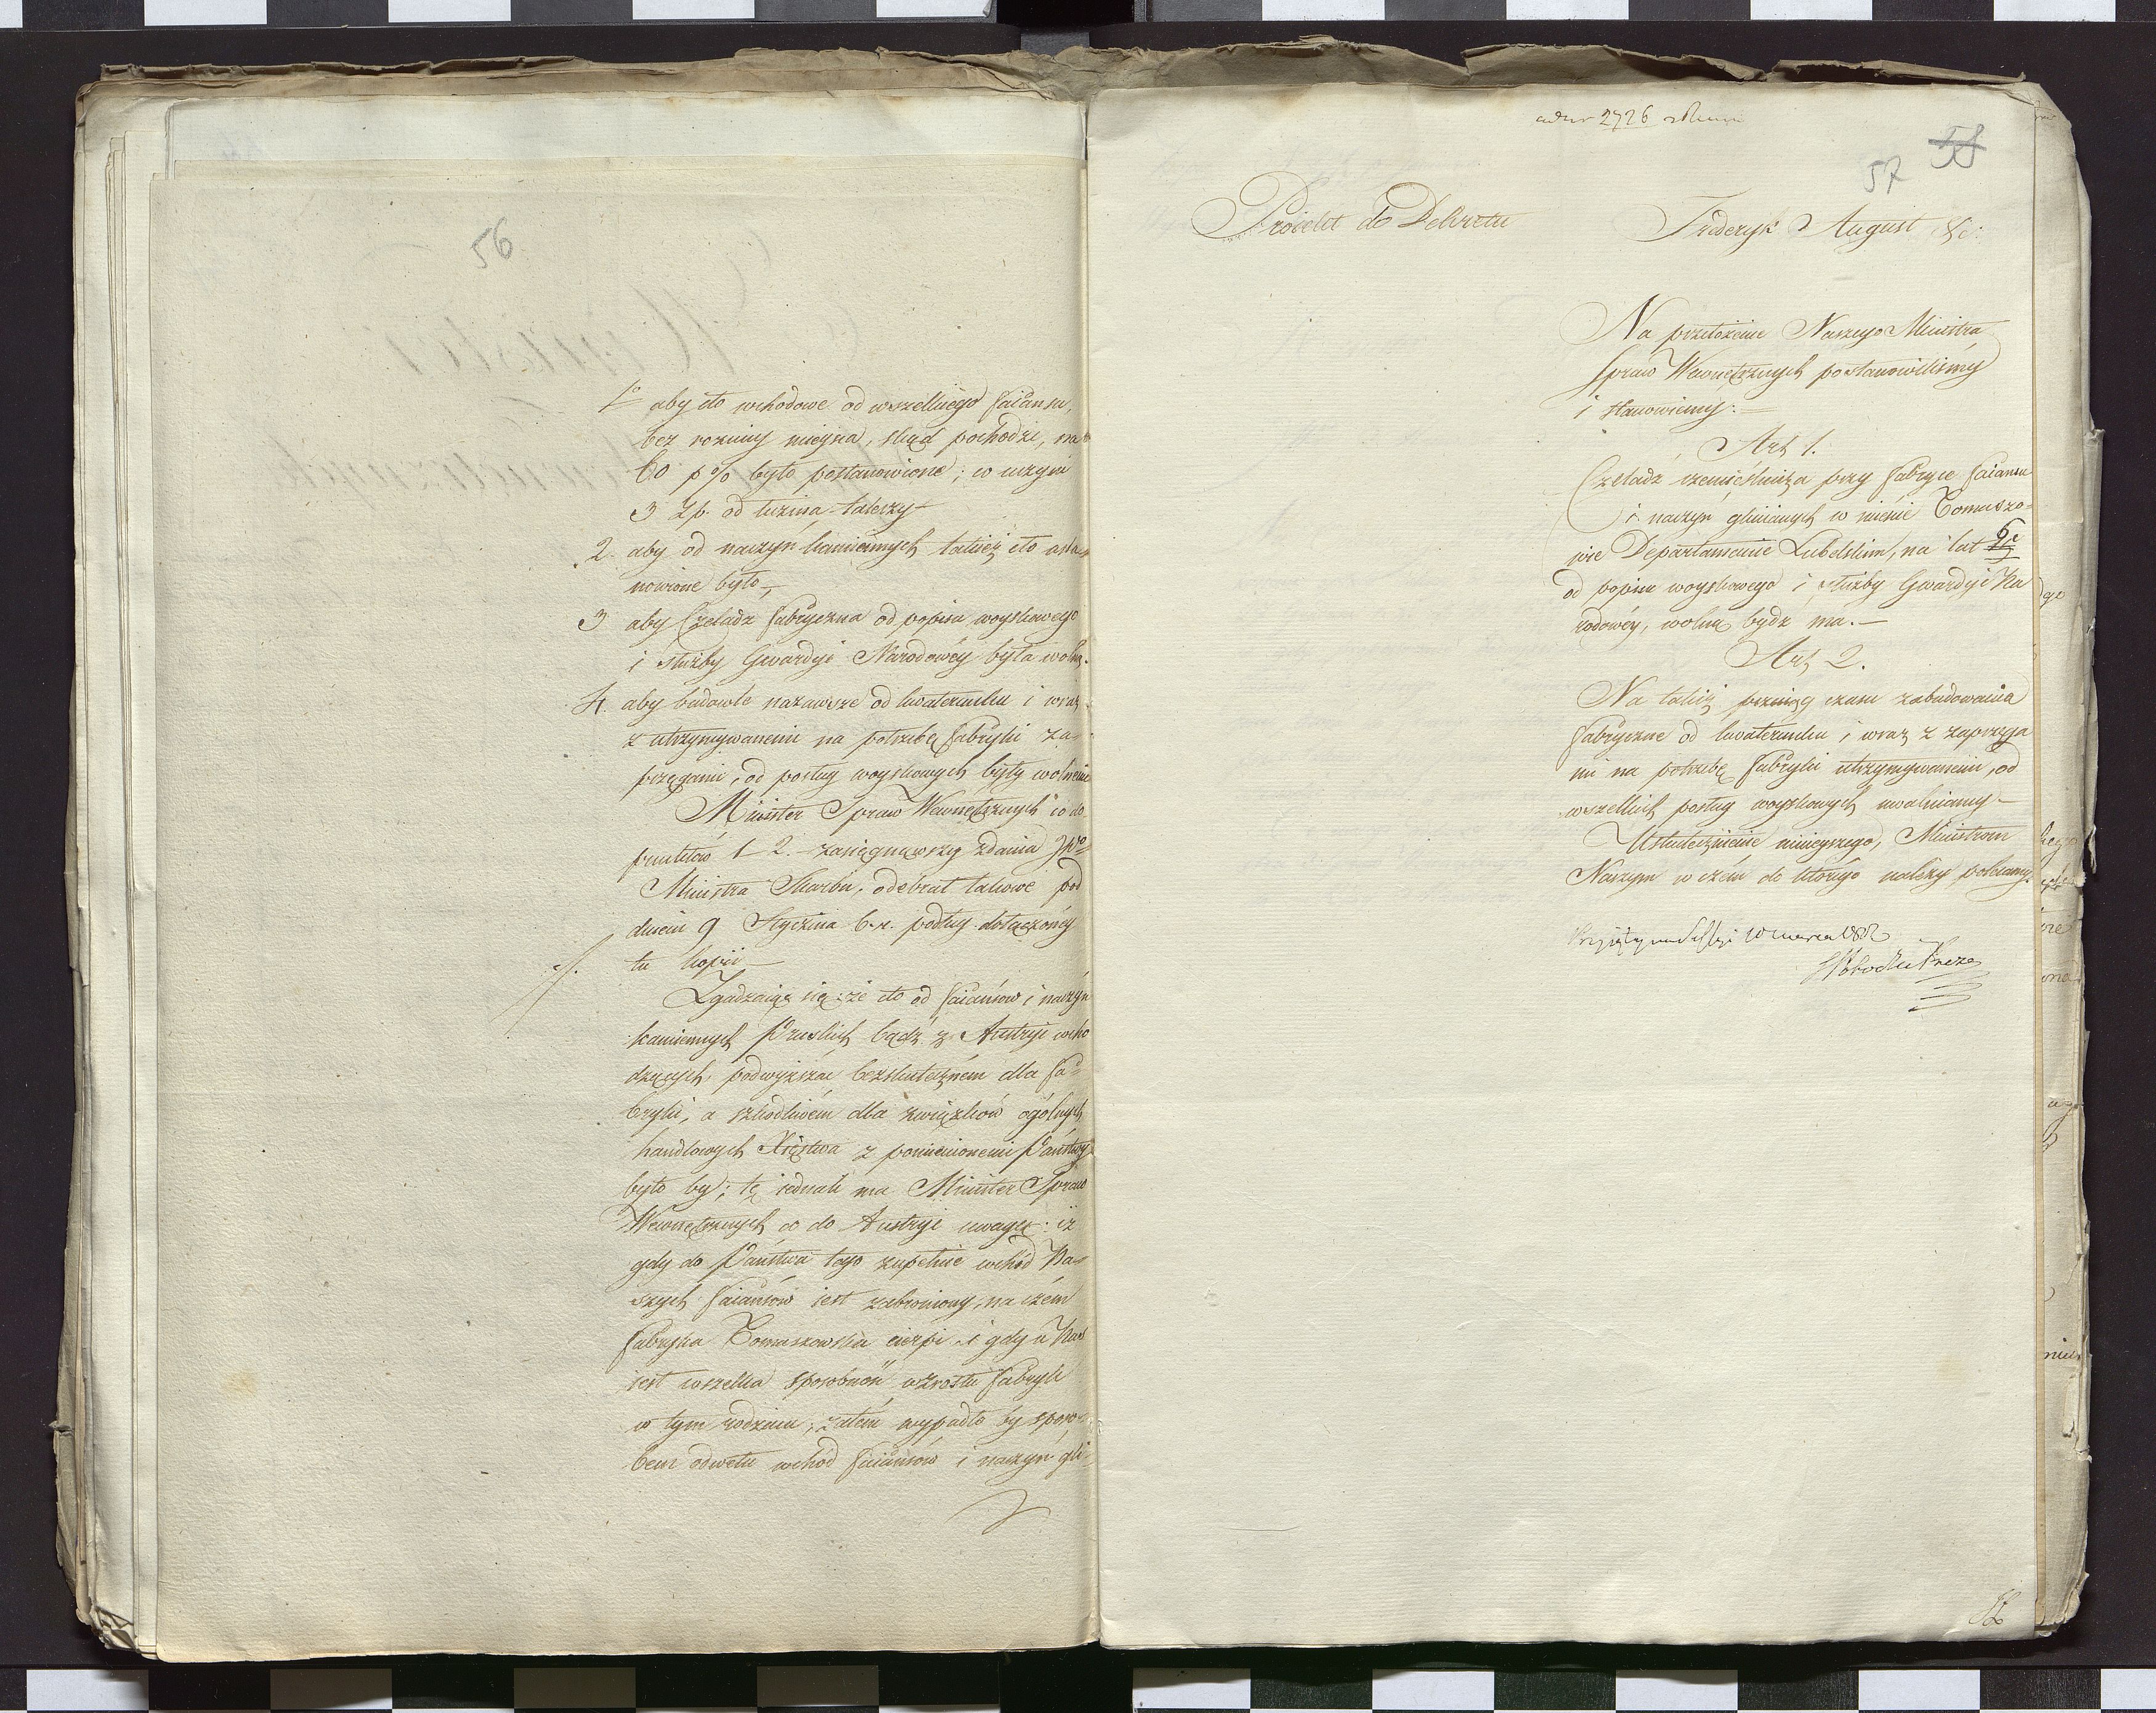 56
1º aby cło wchodowe od wszelkiego faiansu,
bez rożnicy mieysca, skąd pochodzi, na
60 p% było postanowione; w uczyni
3 Zp. od tuzina talerzy
2. aby od naczyń kamiennych takież cło usta-
nowione było,
3 aby Czeladz fabryczna od popisu woyskowego
i służby Gwardyi Narodowéy była wolną.
4. aby budowle nazawsze od kwaterunku i wraz
z utrzymywanemi na potrzebę fabryki za-
przęgami, od posług woyskowych były wolnemi
Minister Spraw Wewnętrznych co do
punktów 1 2. zasięgnąwszy zdania JP.
Ministra Skarbu, odebrał takowe pod
dniem 9 Stycznia b. r. podług dołączonéy
tu kopii
Zgadzaiąc się: że cło od faiansów i naczyń
kamiennych Pruskich bądź z Austryi wcho
dzących, podwyższać bezskuteczném dla fa-
bryki, a szkodliwém dla związków ogólnych
handlowych Xięstwa z pomienionemi Państwy
było by; tę iednak ma Minister Spraw
Wewnętrznych co do Austryi uwagę: iż
gdy do Państwa tego zupełnie wchód Na-
szych faiansów iest zabroniony, na czém
fabryka Tomaszowska cierpi, i gdy u Nas
iest wszelka sposobność wzrostu fabryk
w tym rodzaiu; zatém wypadło by sposo-
bem odwetu wchód faiansów i naczyń gli
2726
57 58
Proiekt do Dekretu
Fryderyk August &c:
Na przełożenie Naszego Ministra
Spraw Wewnętrznych postanowiliśmy
i stanowiemy:
Art 1.
Czeladź rzemieślnicza przy fabryce faiansu
i naczyń glinianych w mieście Tomaszo-
wie Departamencie Lubelskim, na lat 6ć
od popisu woyskowego i służby Gwardyi Na
rodowéy, wolną bydź ma.
Art 2.
Na takiż przeciąg czasu zabudowania
fabryczne od kwaterunku i wraz z zaprzęga
mi na potrzebę fabryki utrzymywanemi, od
wszelkich posług woyskowych uwalniamy
Uskutecznienie ninieyszego, Ministrom
Naszym w czém do którego należy polecamy.
Przyięty na Sessyi 10 marca